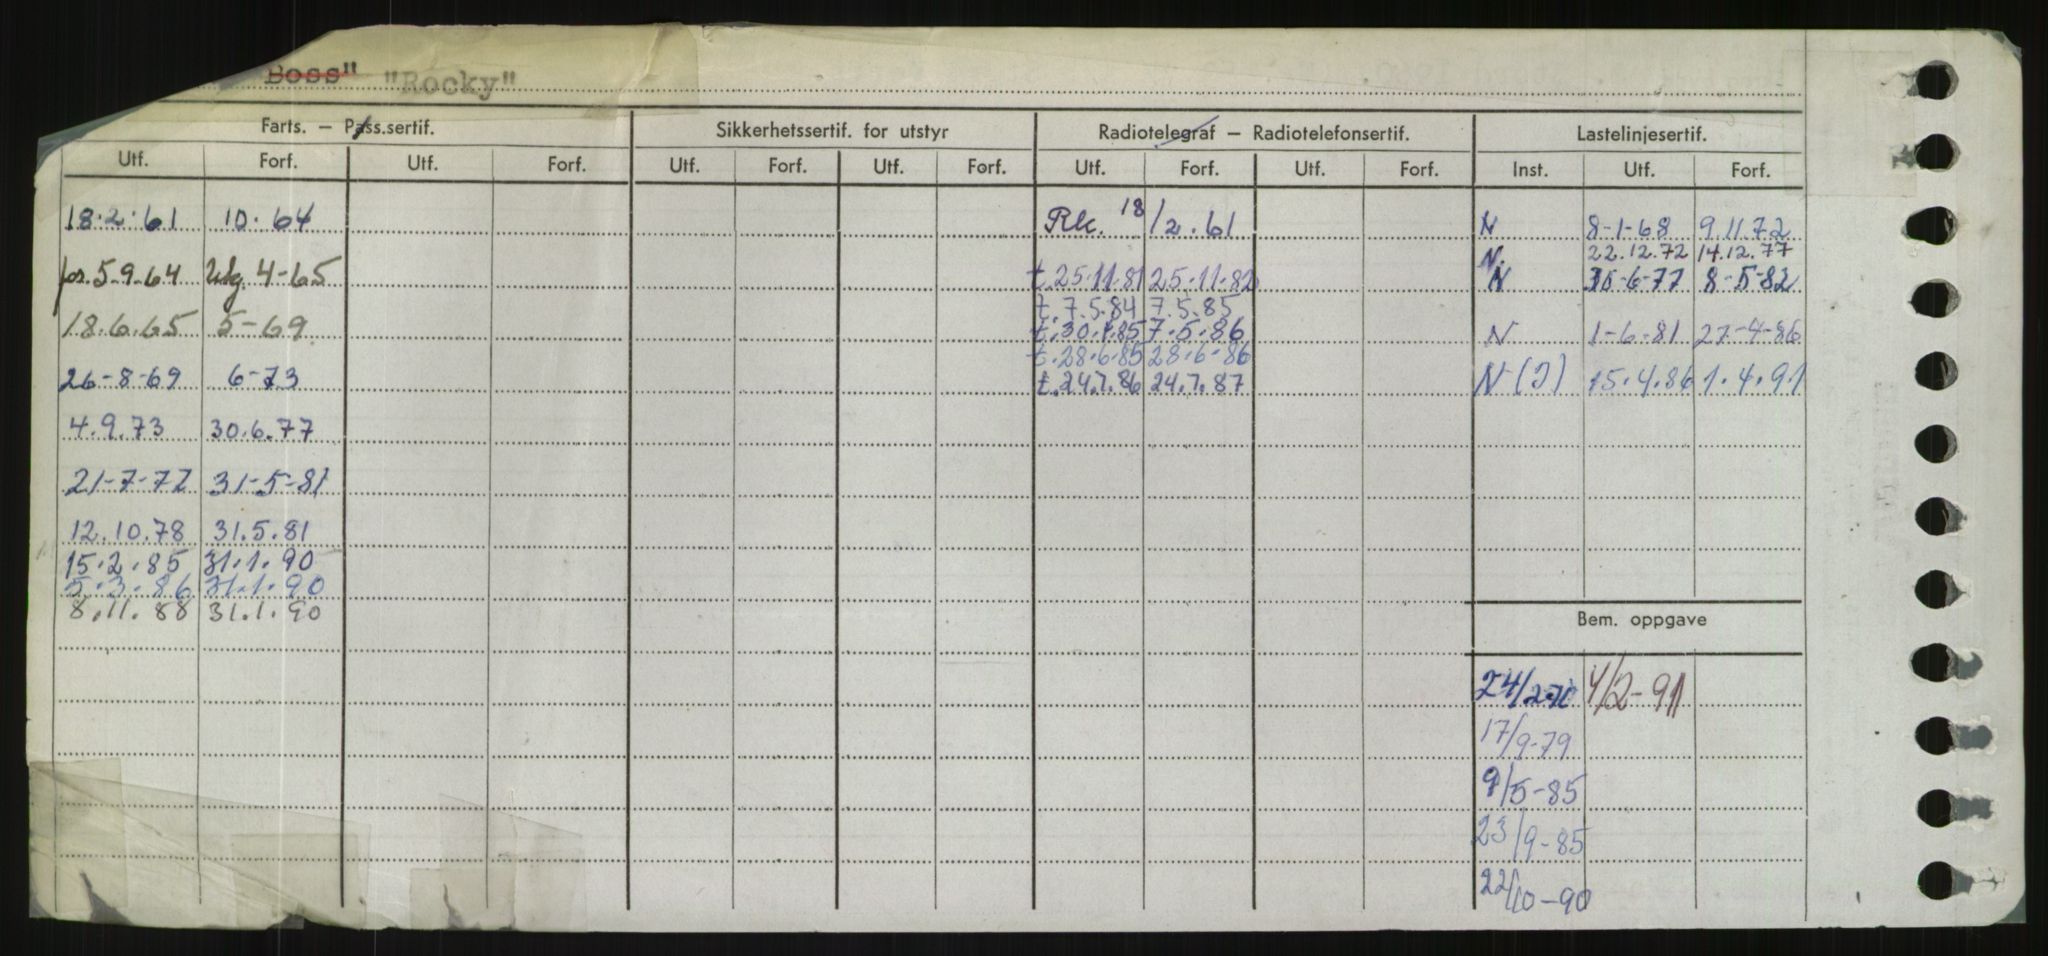 Boss" "Rocky"
Farts. — Pass.sertif. Sikkerhetssertif. for utstyr Radiotelegraf — Radiotelefonsertif. Lastelinjesertif.
Utf. Forf. Utf. Forf. Utf. Forf. Utf. Forf. Utf. Forf. Utf. Forf. Inst. Utf. Forf.
18.2.61 10.64 Rk. 18/2.61 N 8-1-68 9.11.72
N. 22.12.72 14.12.77
5-9.64 4-65 t.25.11.81 25.11.82 N -6-77 8-5-82
t.7.5.84 7.5.85
18.6.65 5-69 t.30.1.85 7.5.86 N 1-6-81 27-4-86
t.28.6.85 28.6.86
26-8-69 6-73 t.24.7.86 24.7.87 N(J) 15.4.86 1.4.91
4.9.73 30.6.77
21-7-77 31-5-81
12.10.78 31.5.81
15.2.85 31.1.90
5.3.86 31.1.90
8.11.88 31.1.90
Bem. oppgave
24/2-70 4/2-91
17/9-79
9/5-85
23/9-85
22/10-90